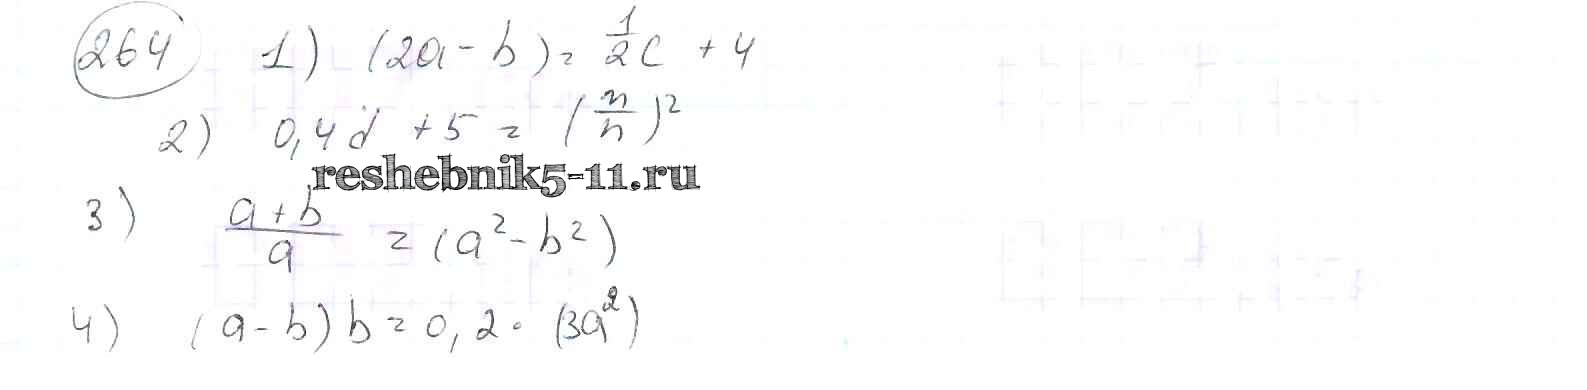 264 1) (2a - b) = 1/2 c + 4
2) 0,4d + 5 = (m/n)²
reshebnik5-11.ru
3) (a + b)/a = (a² - b²)
4) (a - b) b = 0,2 · (3a²)